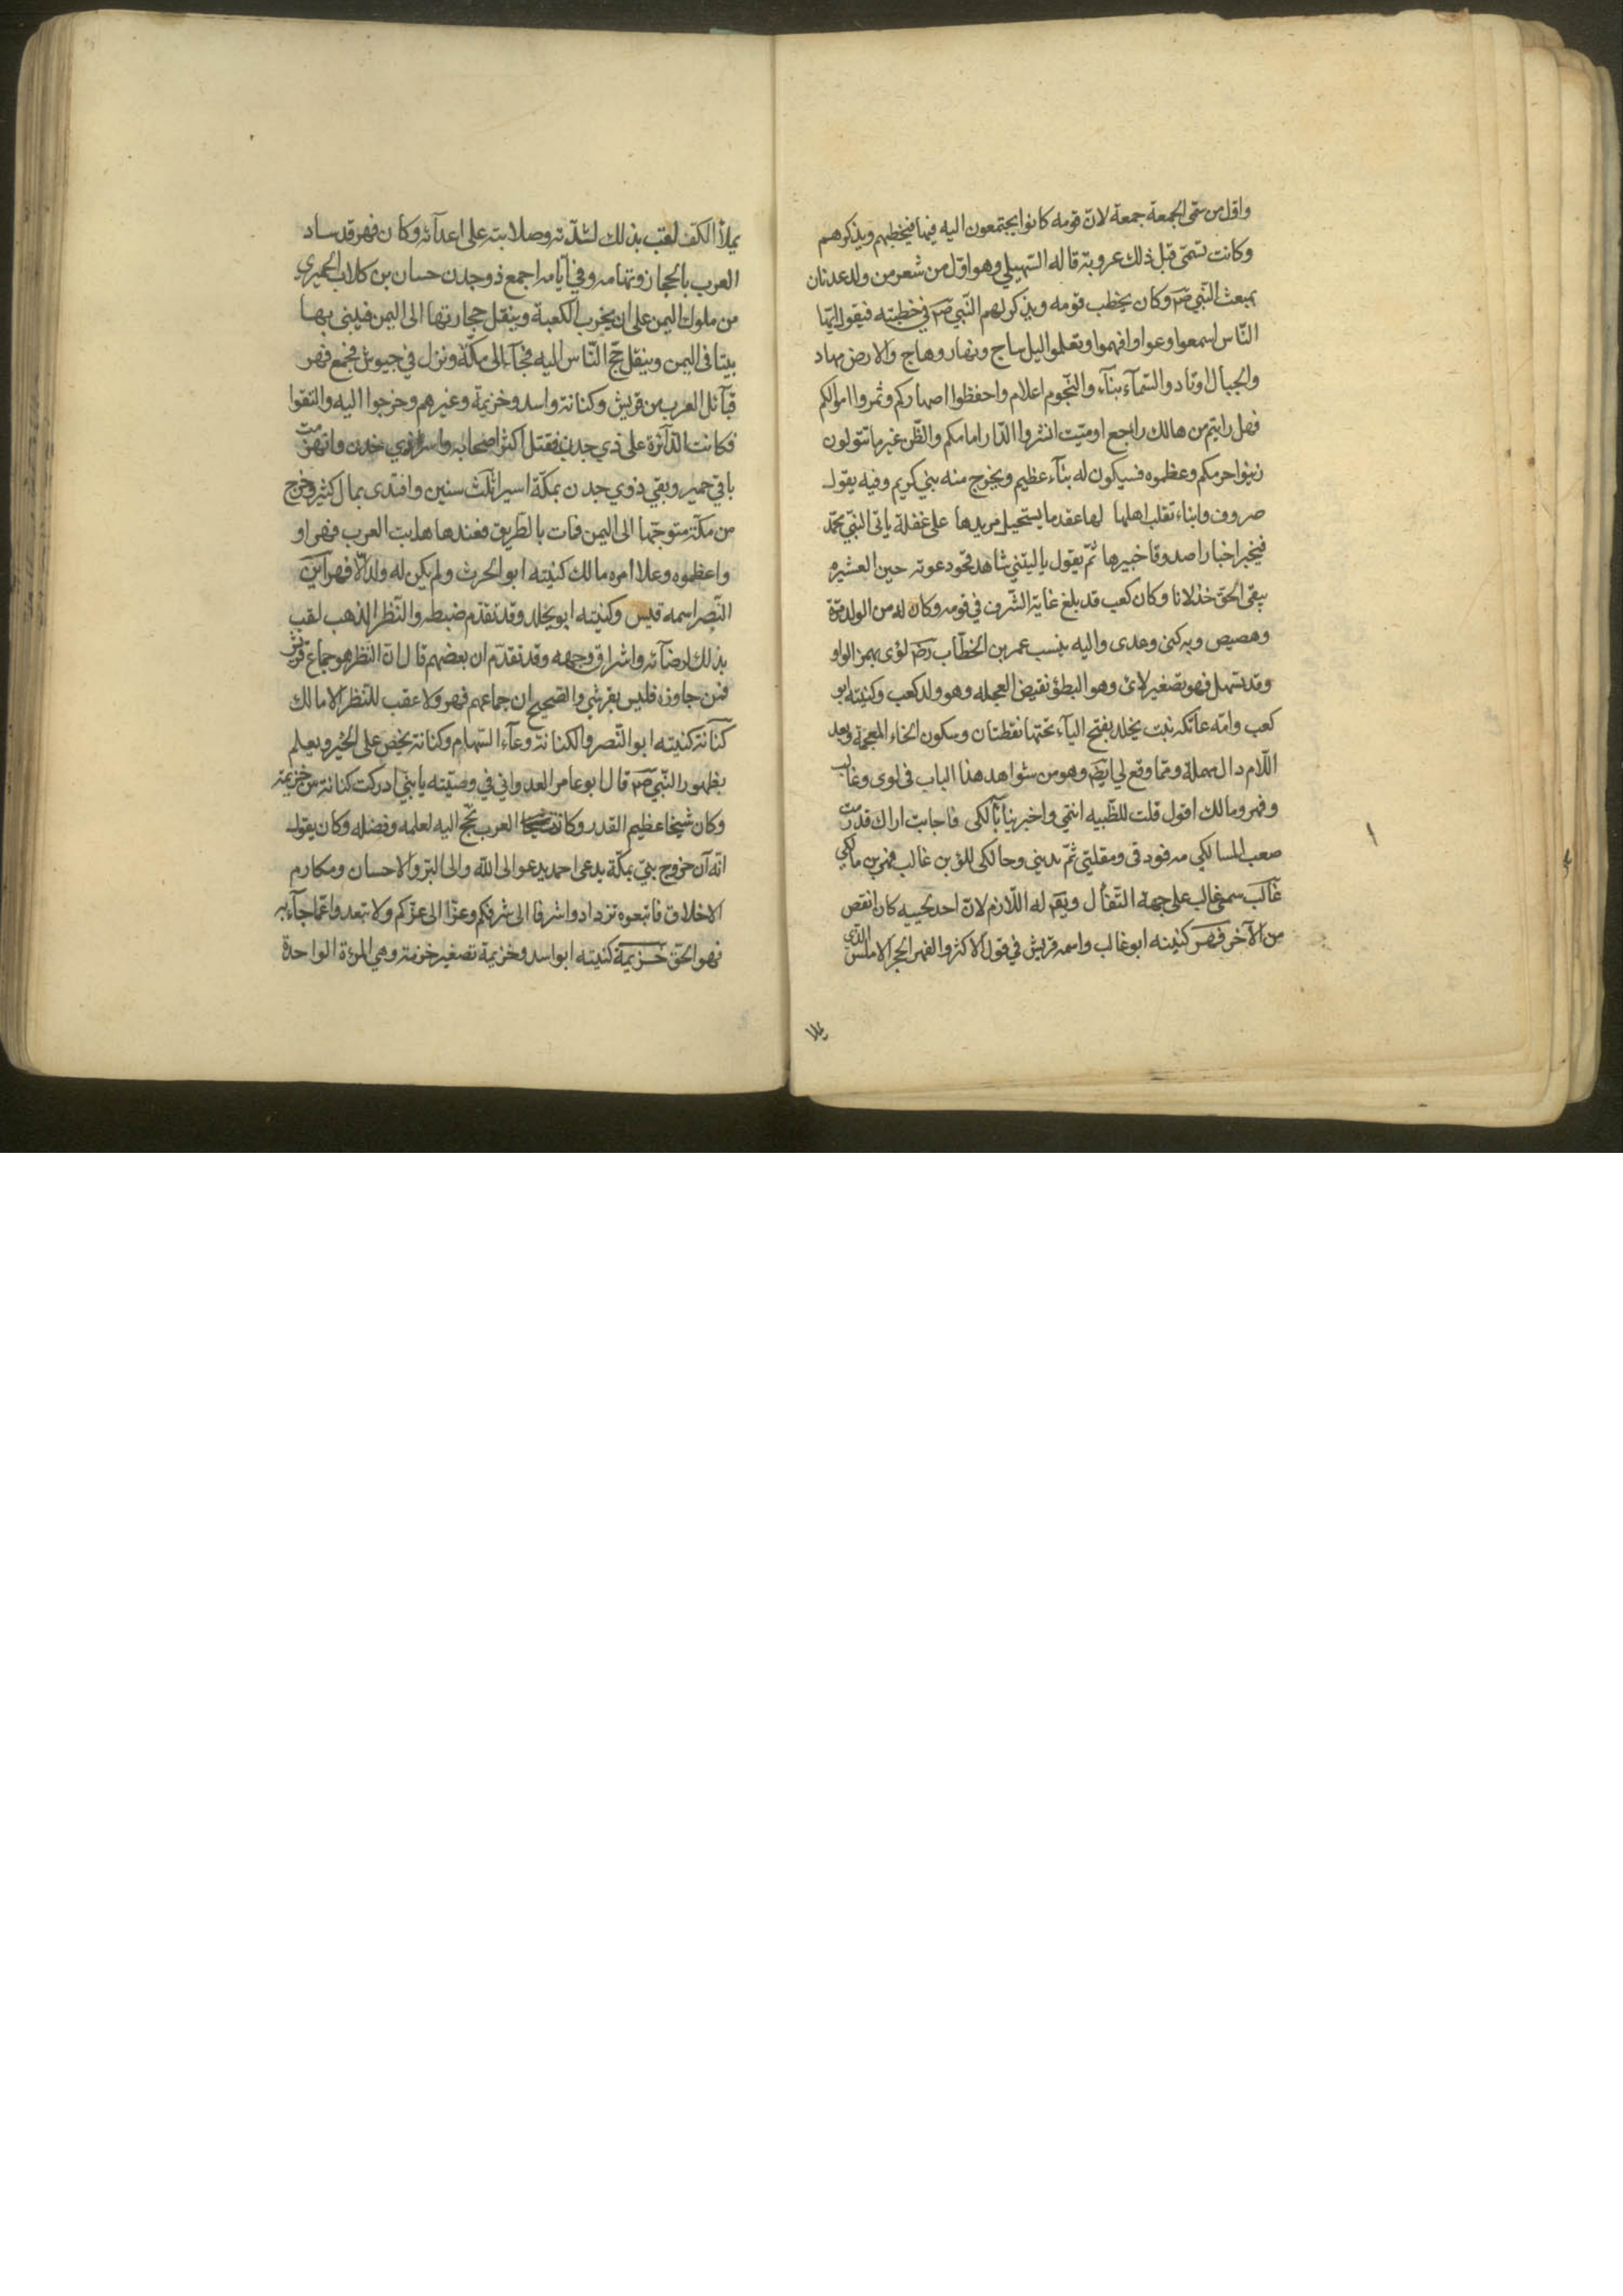 واول من سمى الجمعة جمعة لان قومه كانوا يجتمعون اليه فيها فيخطبهم ويذكرهم
وكانت تسمى قبل ذلك عروبة قاله السهيلي وهو اول من شعر من ولد عدنان
بمبعث النبي صم وكان يخطب قومه ويذكر لهم النبي صم في خطبته فيقول ايها
الناس اسمعوا وعوا وافهموا وتعلموا اليل ساج ونهار وهاج والارض مهاد
والجبال اوتاد والسمآء بنآء والنجوم اعلام واحفظوا اصهاركم وثمروا اموالكم
فهل رايتم من هالك راجع او ميت انشروا الدار امامكم والظن غير ما تقولون
زينوا حرمكم وعظموه فسيكون له بنآء عظيم ويخرج منه بني كريم وفيه يقول
صروف وابناء تقلب اهلها لها عقد ما يستحيل مريدها على غفلة ياتى النبي محمد
فيخبر اخبارا صدوقا خبيرها ثم يقول ياليتني شاهد فحو دعوته حين العشيره
يبقى الحق خذلانا وكان كعب قد بلغ غاية الشرف في قومه وكان له من الولد مرة
وهصيص وبه كنى وعدى واليه ينسب عمر بن الخطاب رضم لؤى بهمز الواو
وقد تسهل فهو تصغير لائ وهو البطؤ نقيض العجله وهو ولد كعب وكنيته ابو
كعب وامه عاتكه بنت يخلد بفتح اليآء تحتها نقطتان وسكون الخاء المعجمة وبعد
اللام دال مهملة ومما وقع لي ايضم وهو من شواهد هذا الباب في لوى وغالب
وفهر ومالك اقول قلت للظبيه انتمي واخبرينا بآلكى فاجابت اراك قدرمت
صعب المسالكي مه فود قى ومقلتى ثم يديني وحالكى للؤ بن غالب فهر بن مالكي
غالب سمى غالب على جهة التفأل ويقم له اللازم لان احد لحييه كان انقص
من الآخر فهر كنيته ابو غالب واسمه قريش في قول الاكثر والفهر الحجر الاملس الذي
يملأ الكف لقب بذلك لشدته وصلابته على اعدآئه وكان فهر قد ساد
العرب بالحجاز وتهامه وفي ايامه اجمع ذو جدن حسان بن كلاب الحميري
من ملوك اليمن على ان يخرب الكعبة وينقل حجارتها الى اليمن فيبنى بها
بيتا في اليمن وينقل حج الناس اليه فجآء الى مكة ونزل في جيوش فجمع فهر
قبآئل العرب من قريش وكنانة واسد وخزيمة وغيرهم وخرجوا اليه والتقوا
فكانت الدآئرة على ذي جدن فقتل اكثر اصحابه واسر ذي جدن وانهزمت
باقي حمير وبقي ذوي جدن بمكة اسيرا ثلث سنين وافتدى بمال كثير وخرج
من مكة متوجها الى اليمن فمات بالطريق فعندها هابت العرب فهر او
واعظموه وعلا امره مالك كنيته ابو الحرث ولم يكن له ولد الا فهر ابن
النضر اسمه قيس وكنيته ابو يخلد وقد تقدم ضبطه والنظر الذهب لقب
بذلك لضآئه واشراق وجهه وقد تقدم ان بعضهم قال ان النظر هو جماع قريش
فمن جاوزه فليس بقرشي والصحيح ان جماعهم فهر ولا عقب للنظر الا مالك
كنانة كنيته ابو النصر والكنانة وعآء السهام وكنانة يحض على الخير ويعلم
بظهور النبي صم قال ابو عامر العدواني في وصيته يا بني ادركت كنانة بن خزيمة
وكان شيخا عظيم القدر وكانت العرب تحج اليه لعلمه وفضله وكان يقول
انه آن خروج بني بمكة يدعى احمد يدعو الى الله والى البر والاحسان ومكارم
الاخلاق فاتبعوه تزدادوا شرفا الى شرفكم وعزا الى عزكم ولا تبعدوا عما جآء به
فهو الحق خزيمة كنيته ابو اسد وخزيمة تصغير خزمة وهي المرة الواحدة
يملا